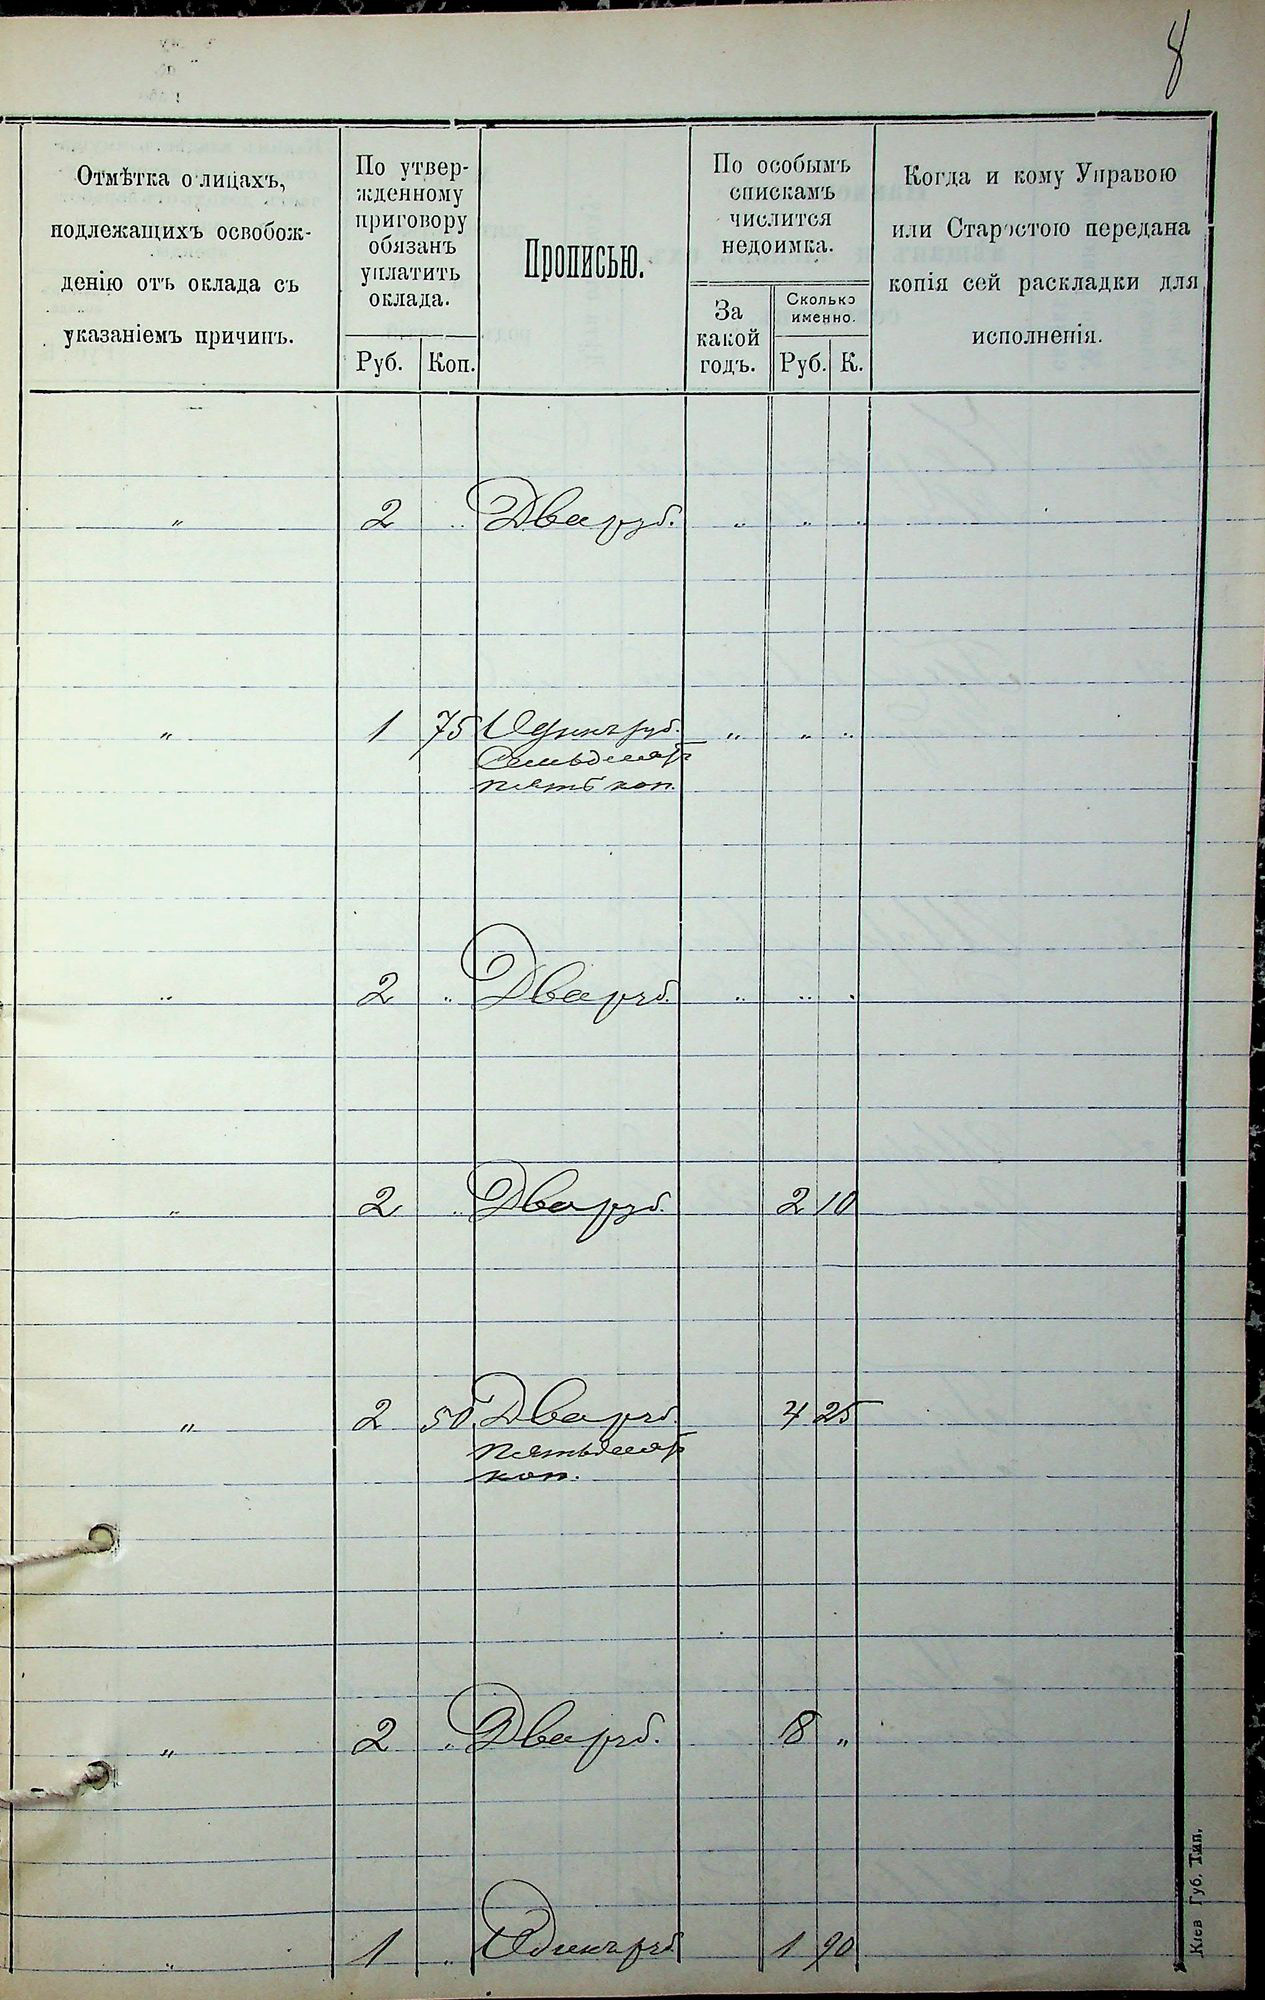 8
Отмѣтка о лицахъ,
подлежащихъ освобож-
денію отъ оклада съ
указаніемъ причинъ.
По утвер-
жденному
приговору
обязанъ
уплатить
оклада.
Руб. Коп.
Прописью.
По особымъ
спискамъ
числится
недоимка.
За
какой
годъ.
Сколько
именно.
Руб. К.
Когда и кому Управою
или Старостою передана
копія сей раскладки для
исполненія.
„ 2 „ Два руб. „ „ „
„ 1 75 Одинъ руб. „ „ „
Семьдесятъ
пять коп.
„ 2 „ Два руб. „ „ „
„ 2 „ Два руб. 2 10
„ 2 50 Два руб. 4 25
пятьдесятъ
коп.
„ 2 „ Два руб. 8 „
„ 1 „ Одинъ руб 1 90
Кіев Губ. Тип.